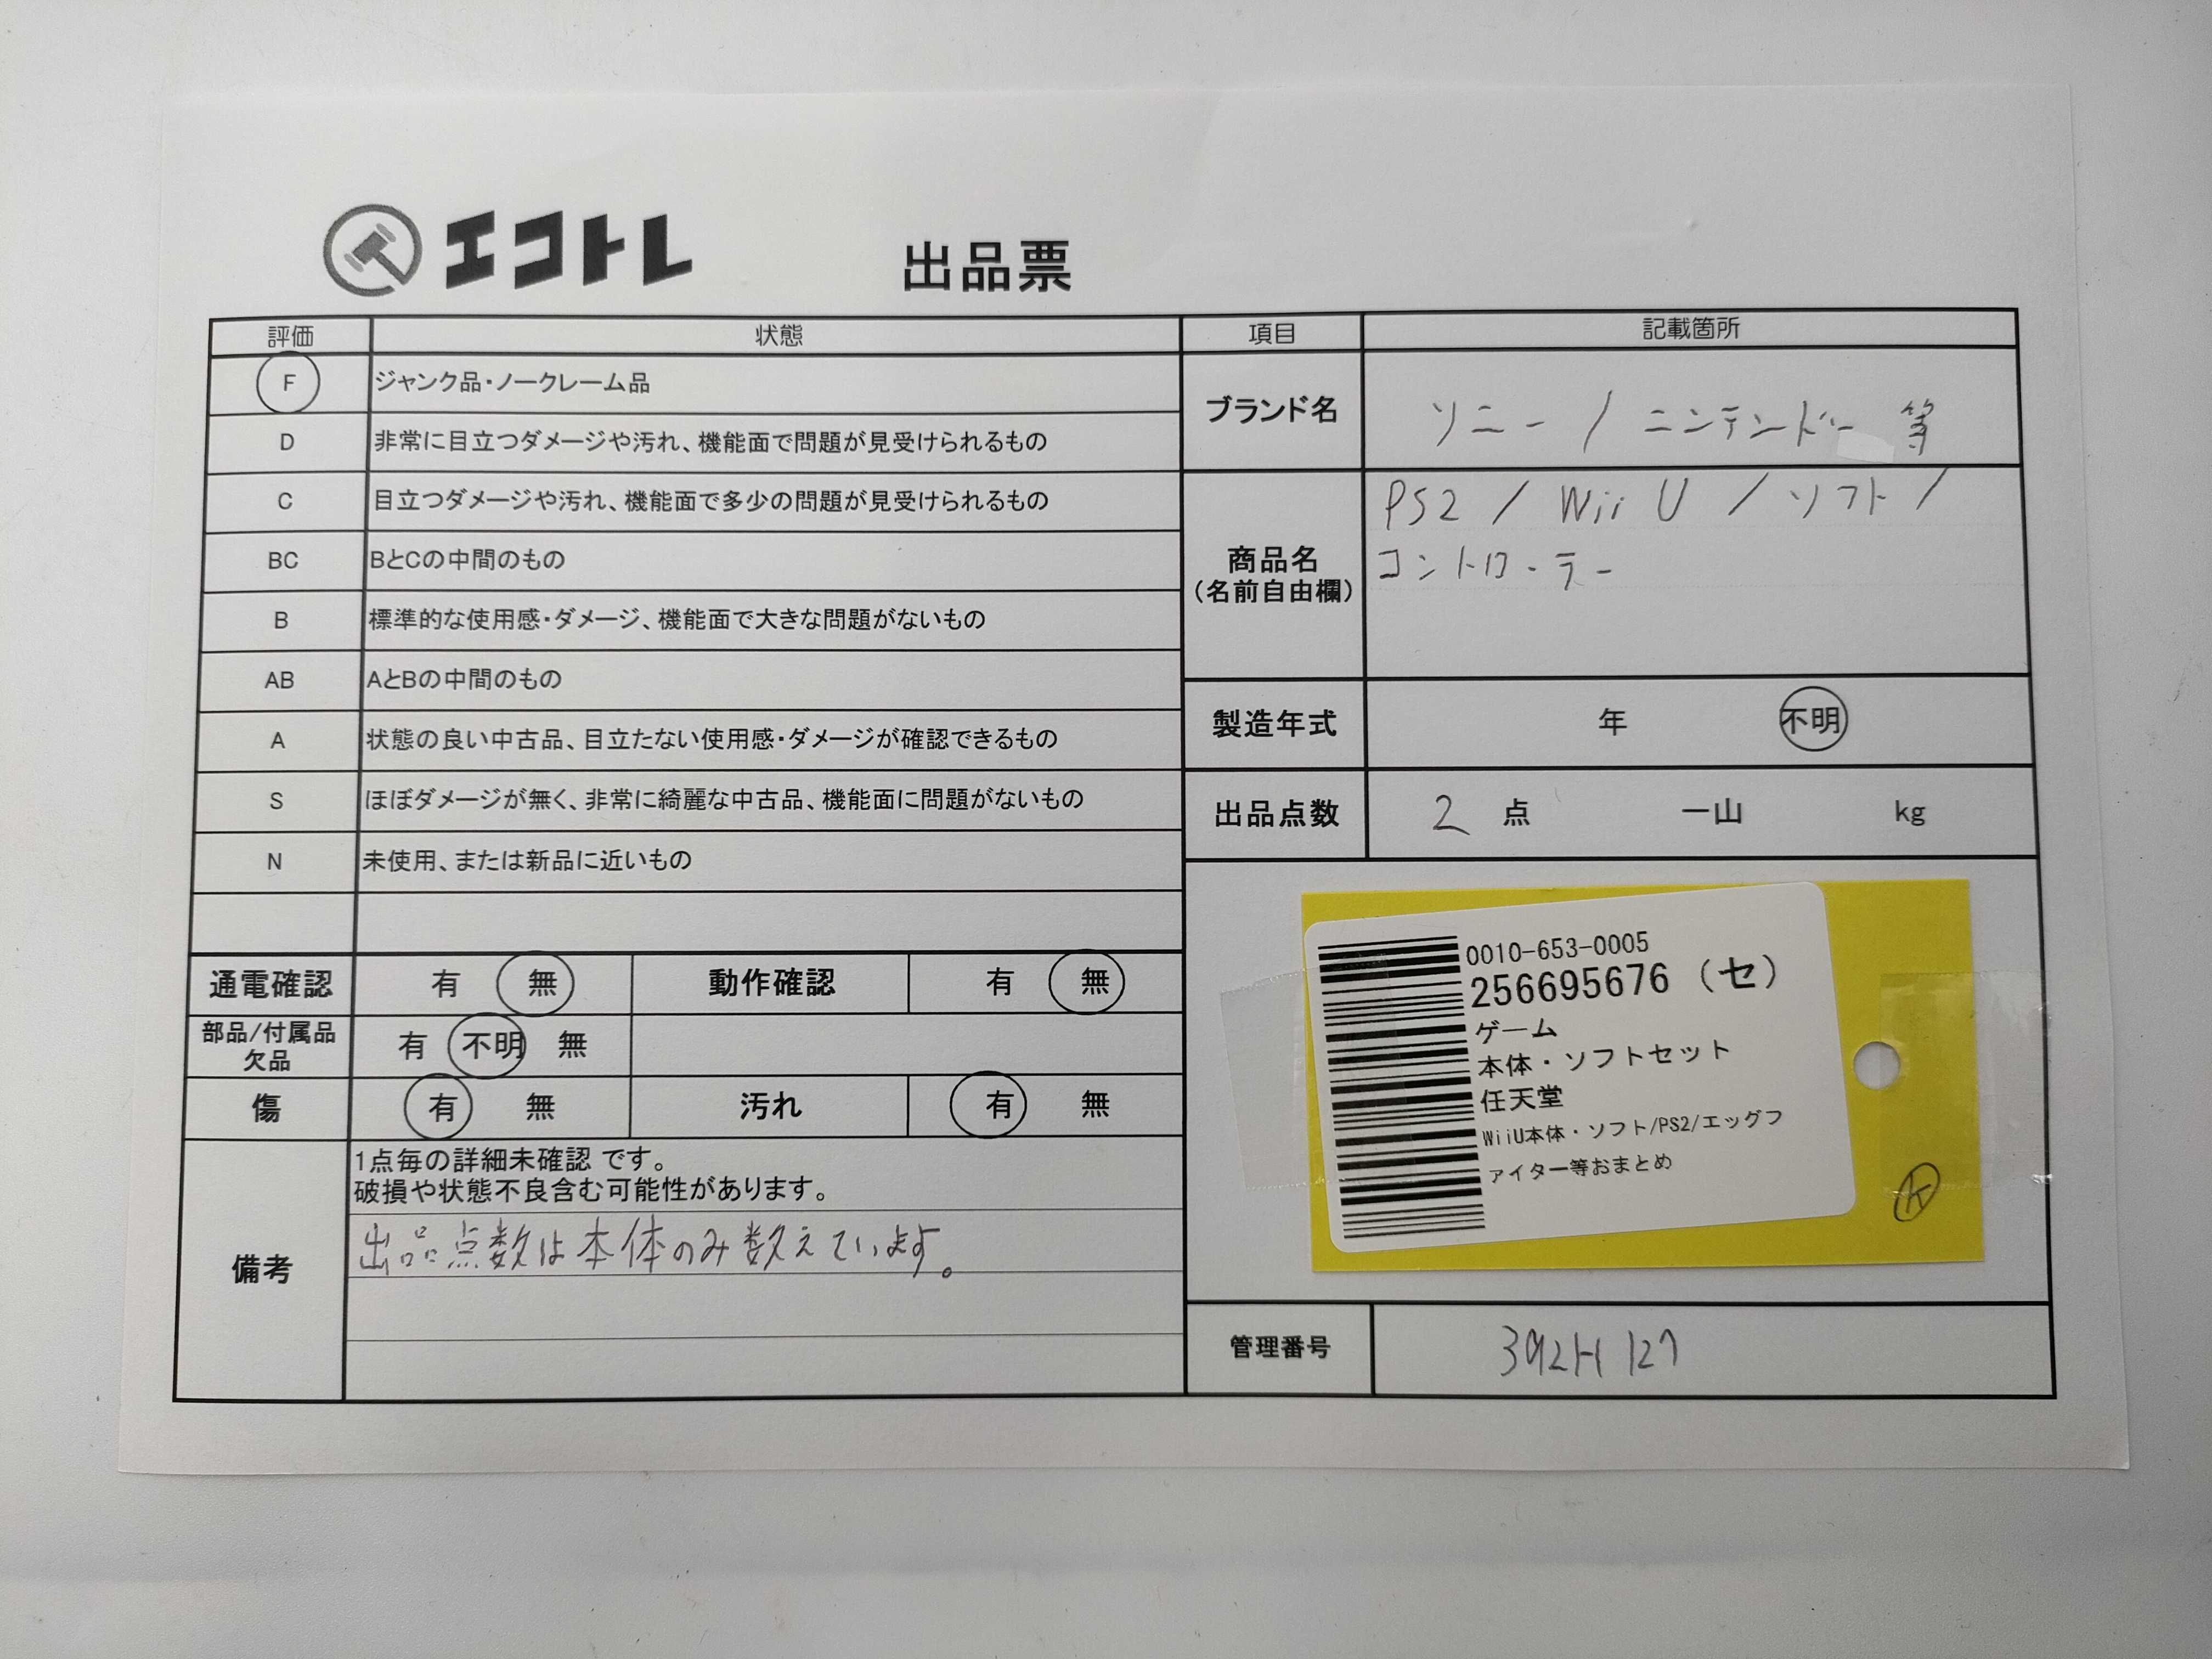 エコトレ
出品票
評価 状態
F ジャンク品・ノークレーム品
D 非常に目立つダメージや汚れ、機能面で問題が見受けられるもの
C 目立つダメージや汚れ、機能面で多少の問題が見受けられるもの
BC BとCの中間のもの
B 標準的な使用感・ダメージ、機能面で大きな問題がないもの
AB AとBの中間のもの
A 状態の良い中古品、目立たない使用感・ダメージが確認できるもの
S ほぼダメージが無く、非常に綺麗な中古品、機能面に問題がないもの
N 未使用、または新品に近いもの
通電確認 有 無 動作確認 有 無
部品/付属品
欠品 有 不明 無
傷 有 無 汚れ 有 無
備考
1点毎の詳細未確認 です。
破損や状態不良含む可能性があります。
出品点数は本体のみ数えています。
項目 記載箇所
ブランド名 ソニー / ニンテンドー 等
商品名
(名前自由欄)
PS2 / Wii U / ソフト /
コントローラー
製造年式 年 不明
出品点数 2 点 一山 kg
0010-653-0005
256695676 (セ)
ゲーム
本体・ソフトセット
任天堂
WiiU本体・ソフト/PS2/エッグフ
ァイター等おまとめ
管理番号 392H127